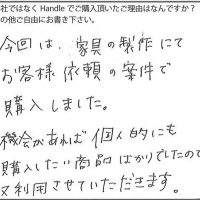 社ではなく Handle でご購入頂いたご理由はなんですか?
の他ご自由にお書き下さい。
今回は、家具の製作にて
お客様依頼の案件で
購入しました。
機会があれば個人的にも
購入したい商品ばかりでしたので
又利用させていただきます。